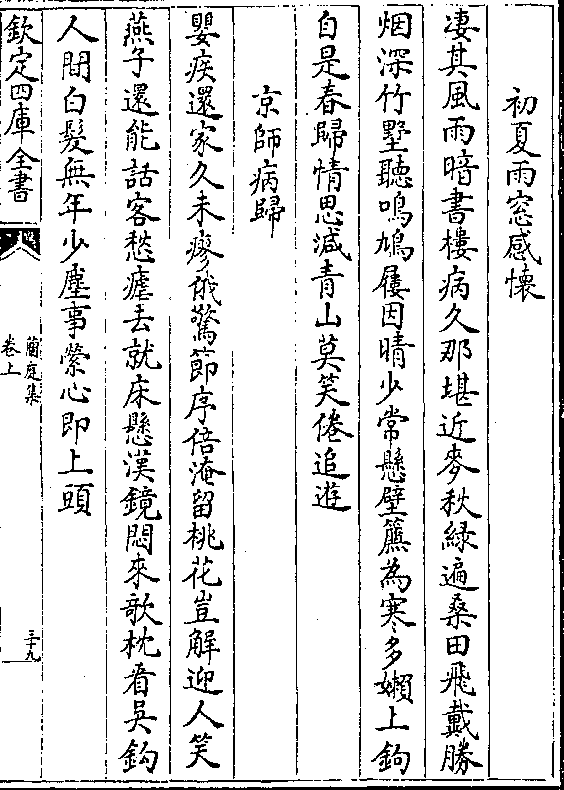 初夏雨窓感懐
凄其風雨暗書樓病久那堪近麥秋緑遍桑田飛戴勝
烟深竹墅聽鳴鳩屨因晴少常懸壁簾為寒多嬾上鉤
自是春歸情思減青山莫笑倦追遊
京師病歸
嬰疾還家久未瘳俄驚節序倍淹留桃花豈解迎人笑
燕子還能話客愁瘧去就床懸漢鏡悶來欹枕看吳鈎
人間白髮無年少塵事縈心即上頭
欽定四庫全書
蘭庭集
卷上
三十九